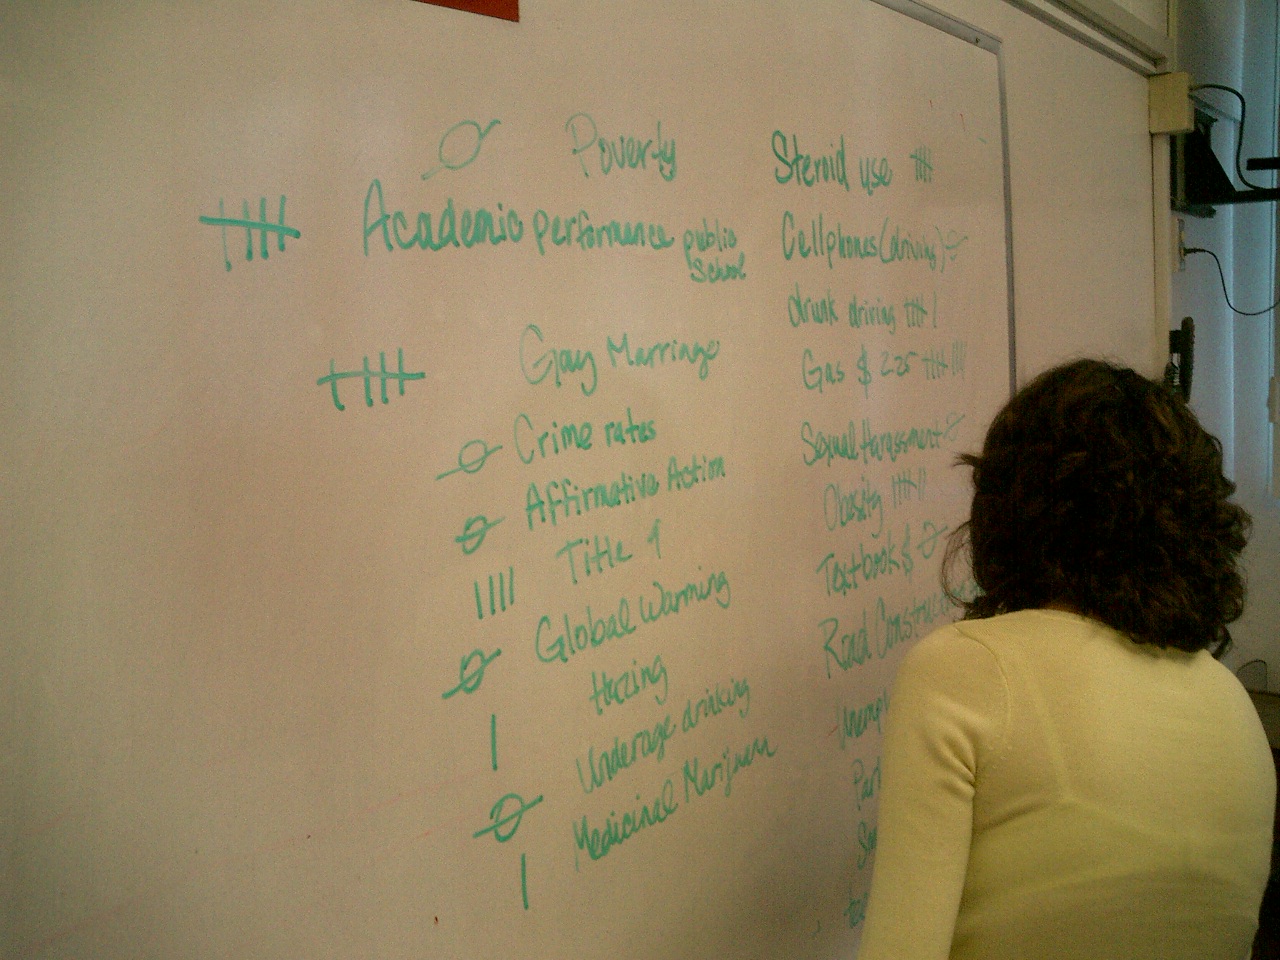 Poverty
Academic performance public School
Gay Marriage
Crime rates
Affirmative Action
Title 9
Global Warming
Hazing
Underage drinking
Medicinal Marijuana
Steroid use
Cellphones (driving)
drunk driving
Gas $ 2.25
Sexual Harassment
Obesity
Textbook $
Road Construct
Unempl
Par